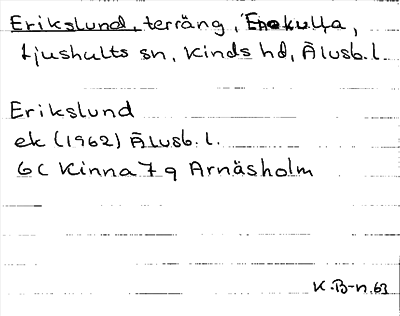 Erikslund, terräng, Enekulla,
Ljushults sn, Kinds hd, Älvsb. l.
Erikslund
ek (1962) Älvsb. l.
6C Kinna 7 g Arnäsholm
K. B-n. 63